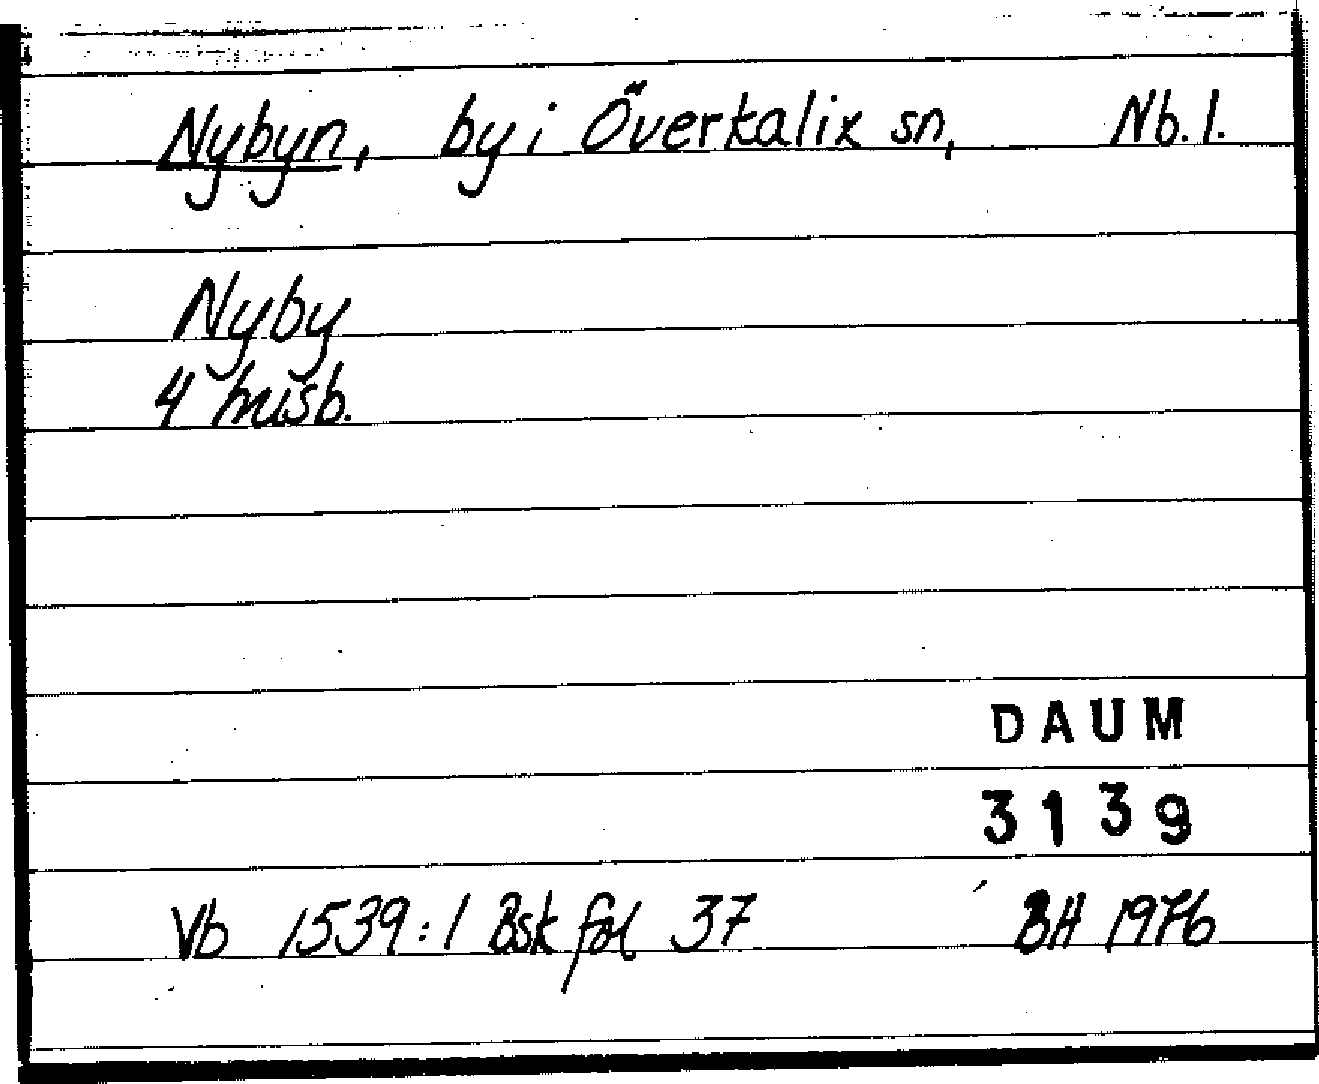 Nybyn, by i Överkalix sn, Nb. l.
Nyby
4 husb.
DAUM
3139
Vb 1539:1 Bsk fol 37 BH 1976